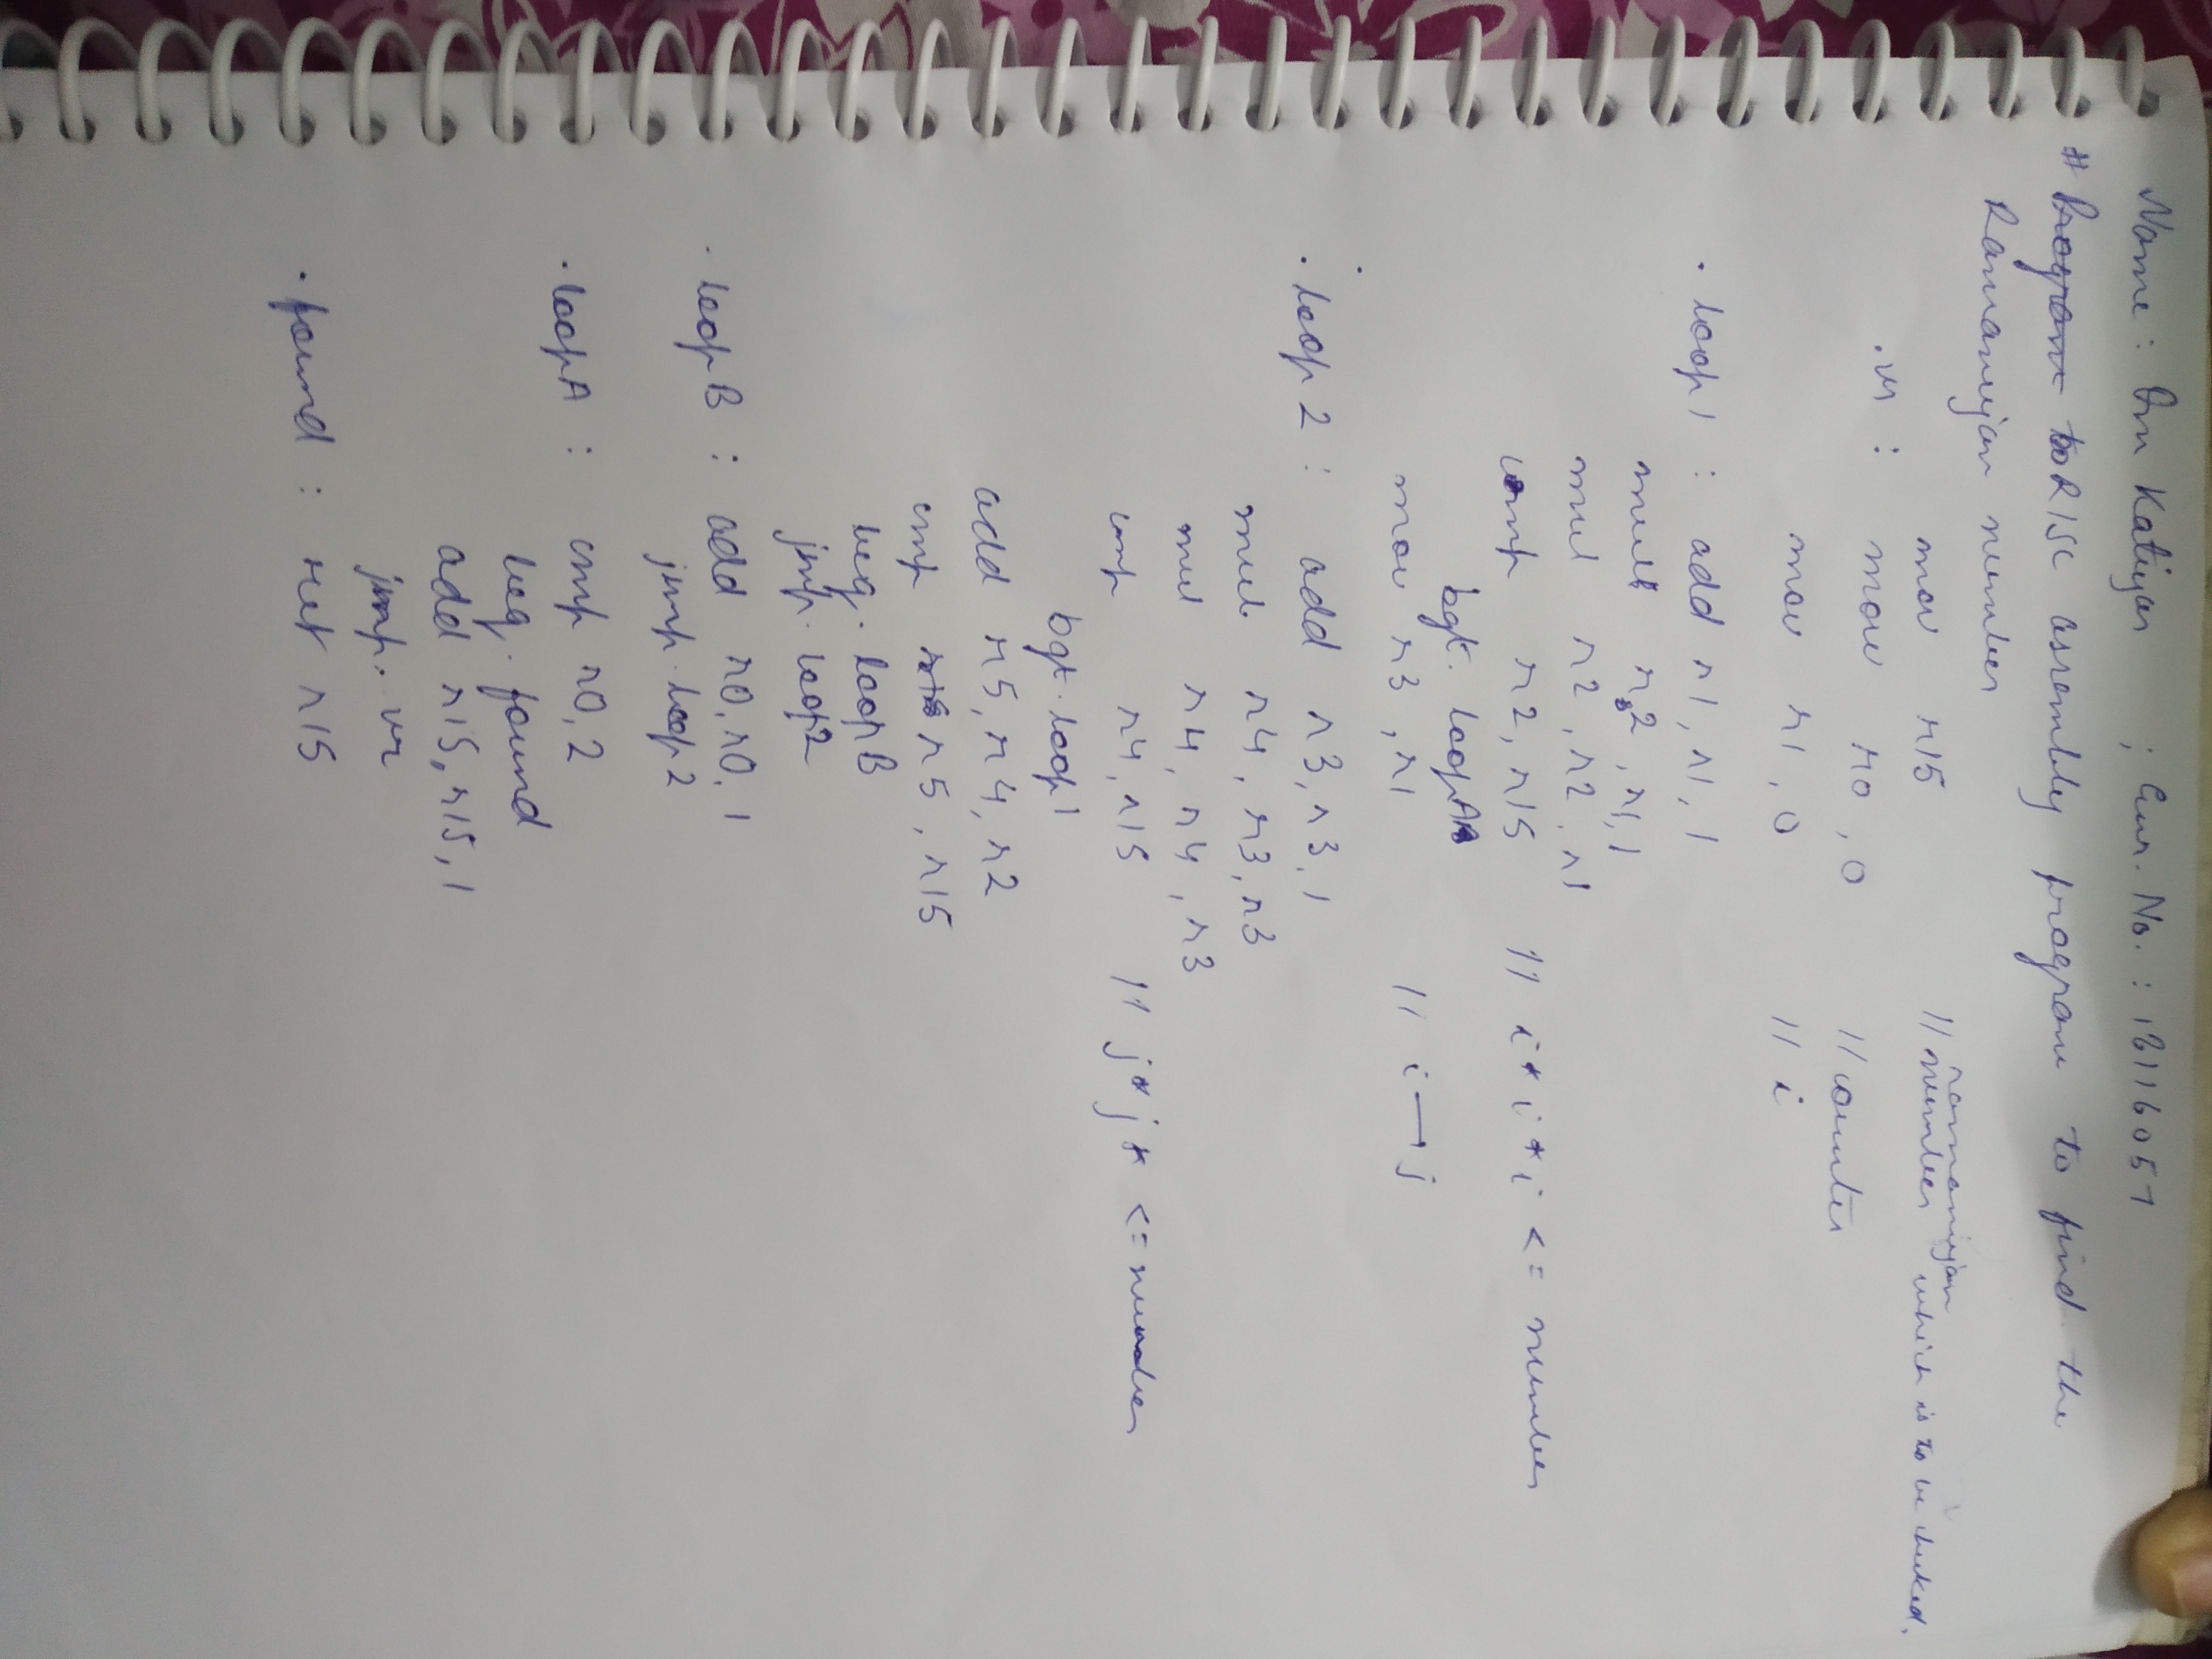 Name : Om Katiyar ; Enr. No. : 18116051
# Program to RISC assembly program to find the
Ramanujan number
mov r15 // ramanujan number which is to be checked.
.vr : mov r0, 0 // counter
mov r1, 0 // i
.loop1 : add r1, r1, 1
mul r2, r1, 1
mul r2, r2, r1
cmp r2, r15 // i*i*i <= number
bgt. loopA
mov r3, r1 // i → j
.loop2 : add r3, r3, 1
mul r4, r3, r3
mul r4, r4, r3
cmp r4, r15 // j*j* <= number
bgt. loop1
add r5, r4, r2
cmp r5, r15
beq. loopB
jmp. loop2
.loopB : add r0, r0, 1
jmp. loop2
.loopA : cmp r0, 2
beq. found
add r15, r15, 1
jmp. vr
.found : ret r15